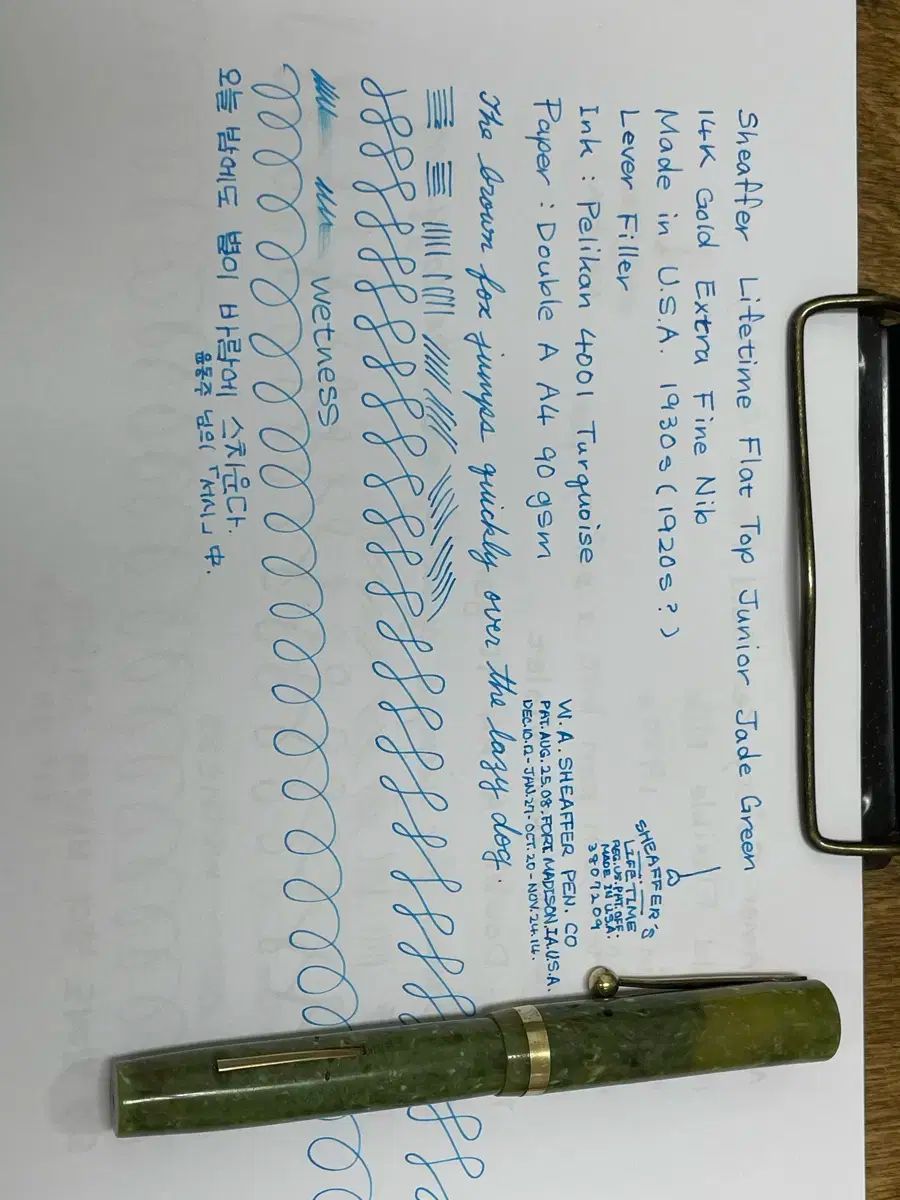 Sheaffer Lifetime Flat Top Junior Jade Green
14K Gold Extra Fine Nib
Made in U.S.A. 1930s (1920s?)
Lever Filler
Ink : Pelikan 4001 Turquoise
Paper : Double A A4 90 gsm
SHEAFFER'S
LIFE-TIME
REG.US.PAT.OFF.
MADE IN U.S.A.
3807209
W.A. SHEAFFER PEN. CO
PAT. AUG. 25.08. FORT MADISON, IA. U.S.A.
DEC.10.12-JAN.27-OCT.20-NOV.24.14.
The brown fox jumps quickly over the lazy dog.
wetness
오늘 밤에도 별이 바람에 스치운다.
윤동주 님의 「서시」 中.